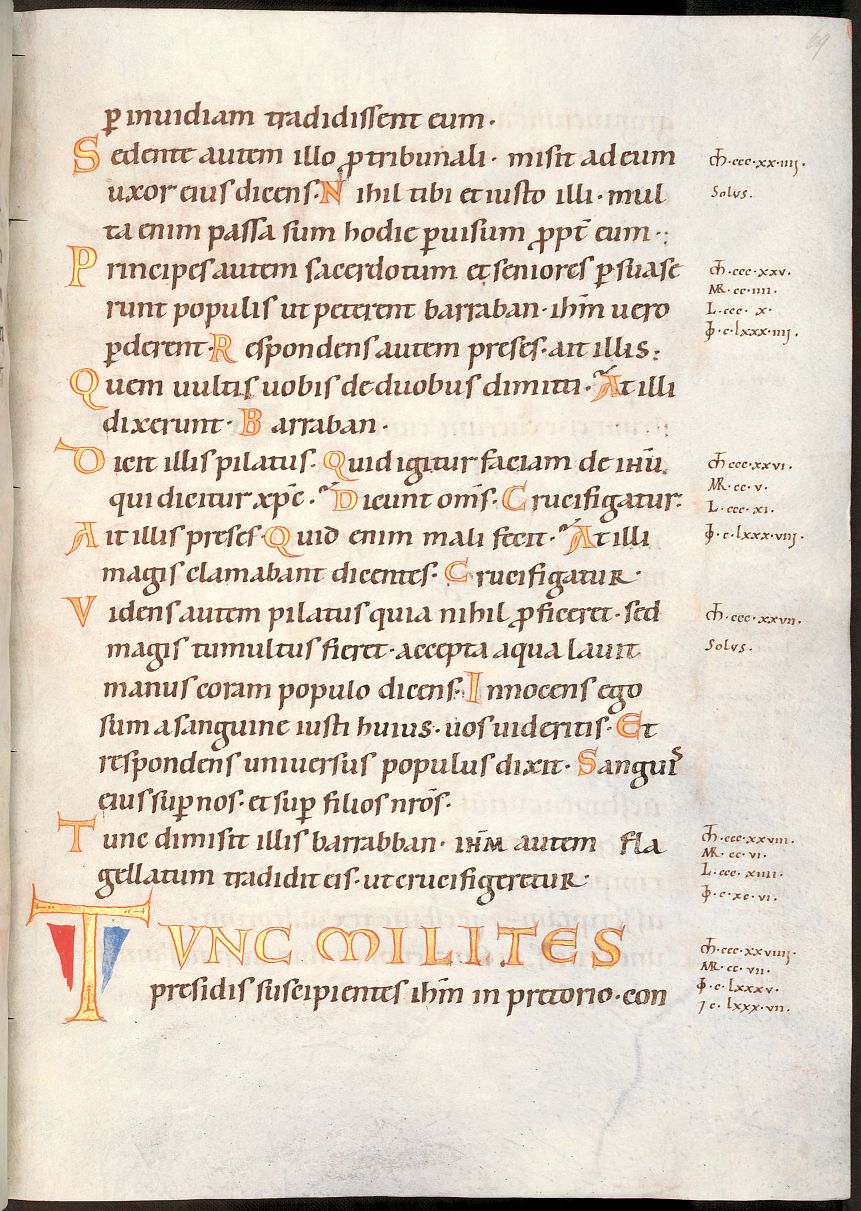 69
ꝑ inuidiam tradidissent eum·
Sedente autem illo ꝓ tribunali· misit ad eum
uxor eius dicens· Nihil tibi et iusto illi· mul
ta enim passa sum hodie ꝑ uisum ꝓpt̄ eum·
Principes autem sacerdotum et seniores ꝑsuase
runt populis ut peterent barraban· ihm̄ uero
ꝑderent· Respondens autem preses· ait illis:
Quem uultis uobis de duobus dimitti· At illi
dixerunt· Barraban·
Dicit illis pilatus· Quid igitur faciam de ihū
qui dicitur xp̄c· Dicunt om̄s· Crucifigatur·
Ait illis preses· Quid enim mali fecit· At illi
magis clamabant dicentes· Crucifigatur·
Videns autem pilatus quia nihil ꝓficeret· sed
magis tumultus fieret· accepta aqua lauit
manus coram populo dicens· Innocens ego
sum a sanguine iusti huius· uos uideritis· Et
respondens uniuersus populus dixit· Sanguis
eius suꝑ nos· et suꝑ filios nr̄os·
Tunc dimisit illis barrabban· ihm̄ autem fla
gellatum tradidit eis· ut crucifigeretur·
TVNC MILITES
presidis suscipientes ihm̄ in pretorio· con
·ccc·xx·iiij·
Solvs·
·ccc·xxv·
MR·cc·iiii·
L·ccc·x·
·c·lxxx·iiij·
·ccc·xxvi·
MR·cc·v·
L·ccc·xi·
·c·lxxx·viij·
·ccc·xxvii·
Solvs·
·ccc·xxviii·
MR·cc·vi·
L·ccc·xiiii·
·c·xc·vi·
·ccc·xxviiij·
MR·cc·vii·
·c·lxxxv·
·c·lxxx·vii·